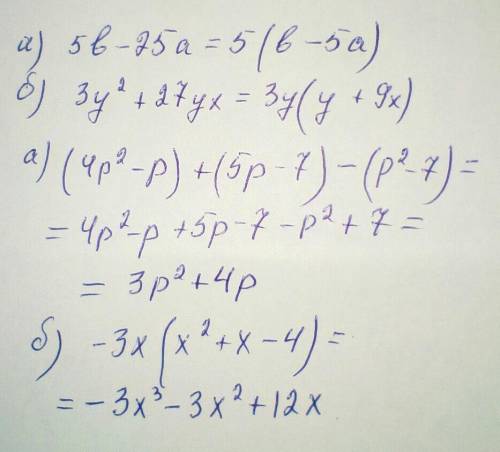 а) 5в - 25а = 5(в - 5а)
б) 3y² + 27yx = 3y(y + 9x)
а) (4p² - p) + (5p - 7) - (p² - 7) =
= 4p² - p + 5p - 7 - p² + 7 =
= 3p² + 4p
б) -3x(x² + x - 4) =
= -3x³ - 3x² + 12x